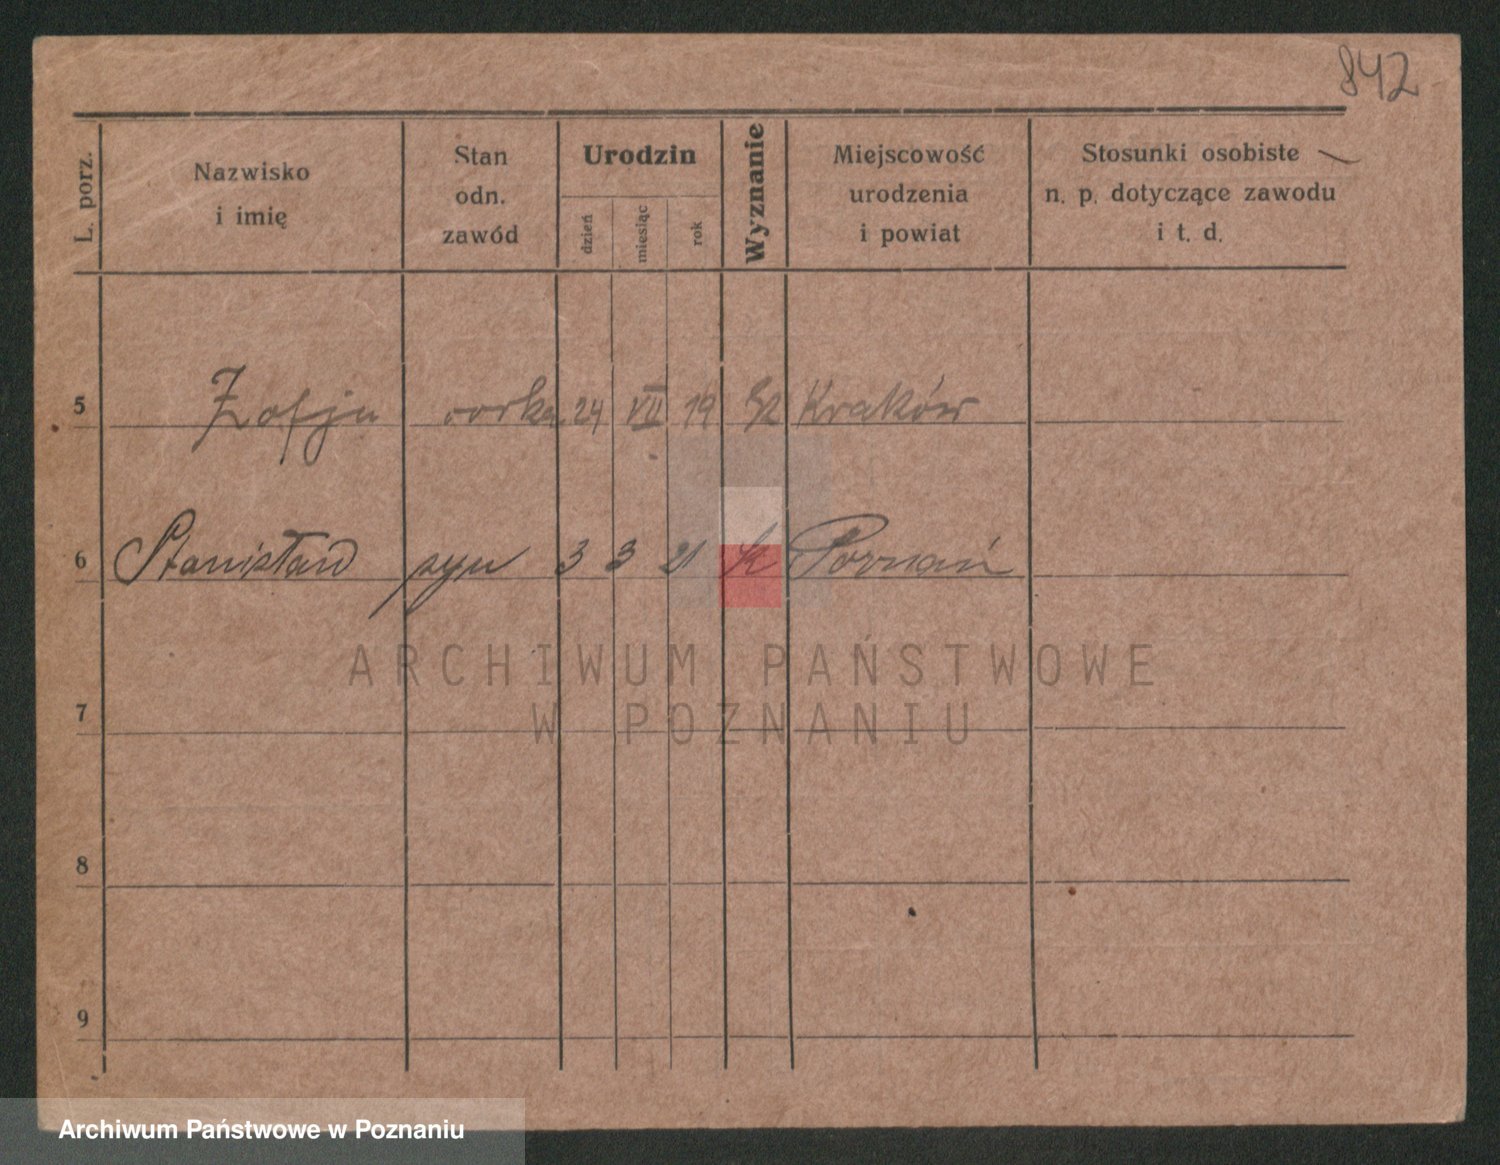 842
L. porz.
Nazwisko
i imię
Stan
odn.
zawód
Urodzin
dzień
miesiąc
rok
Wyznanie
Miejscowość
urodzenia
i powiat
Stosunki osobiste
n. p. dotyczące zawodu
i t. d.
5 Zofja 24 VII 19 Kraków
6 Stanisław syn 3 3 21 k Poznań
ARCHIWUM PAŃSTWOWE
W POZNANIU
7
8
9
Archiwum Państwowe w Poznaniu